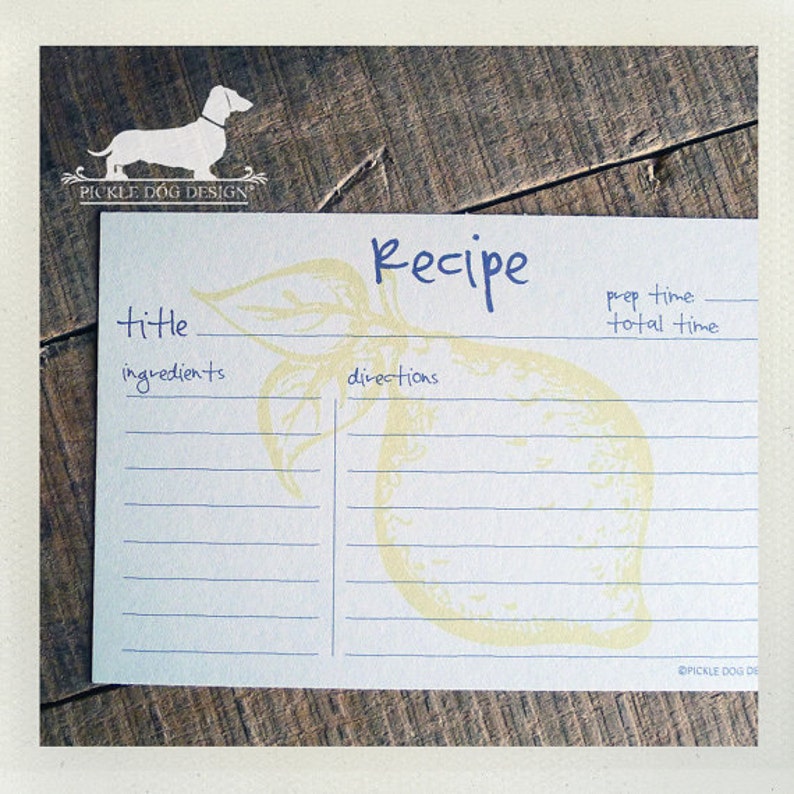 PICKLE DOG DESIGN®
Recipe
prep time
title
total time
ingredients directions
©PICKLE DOG DE